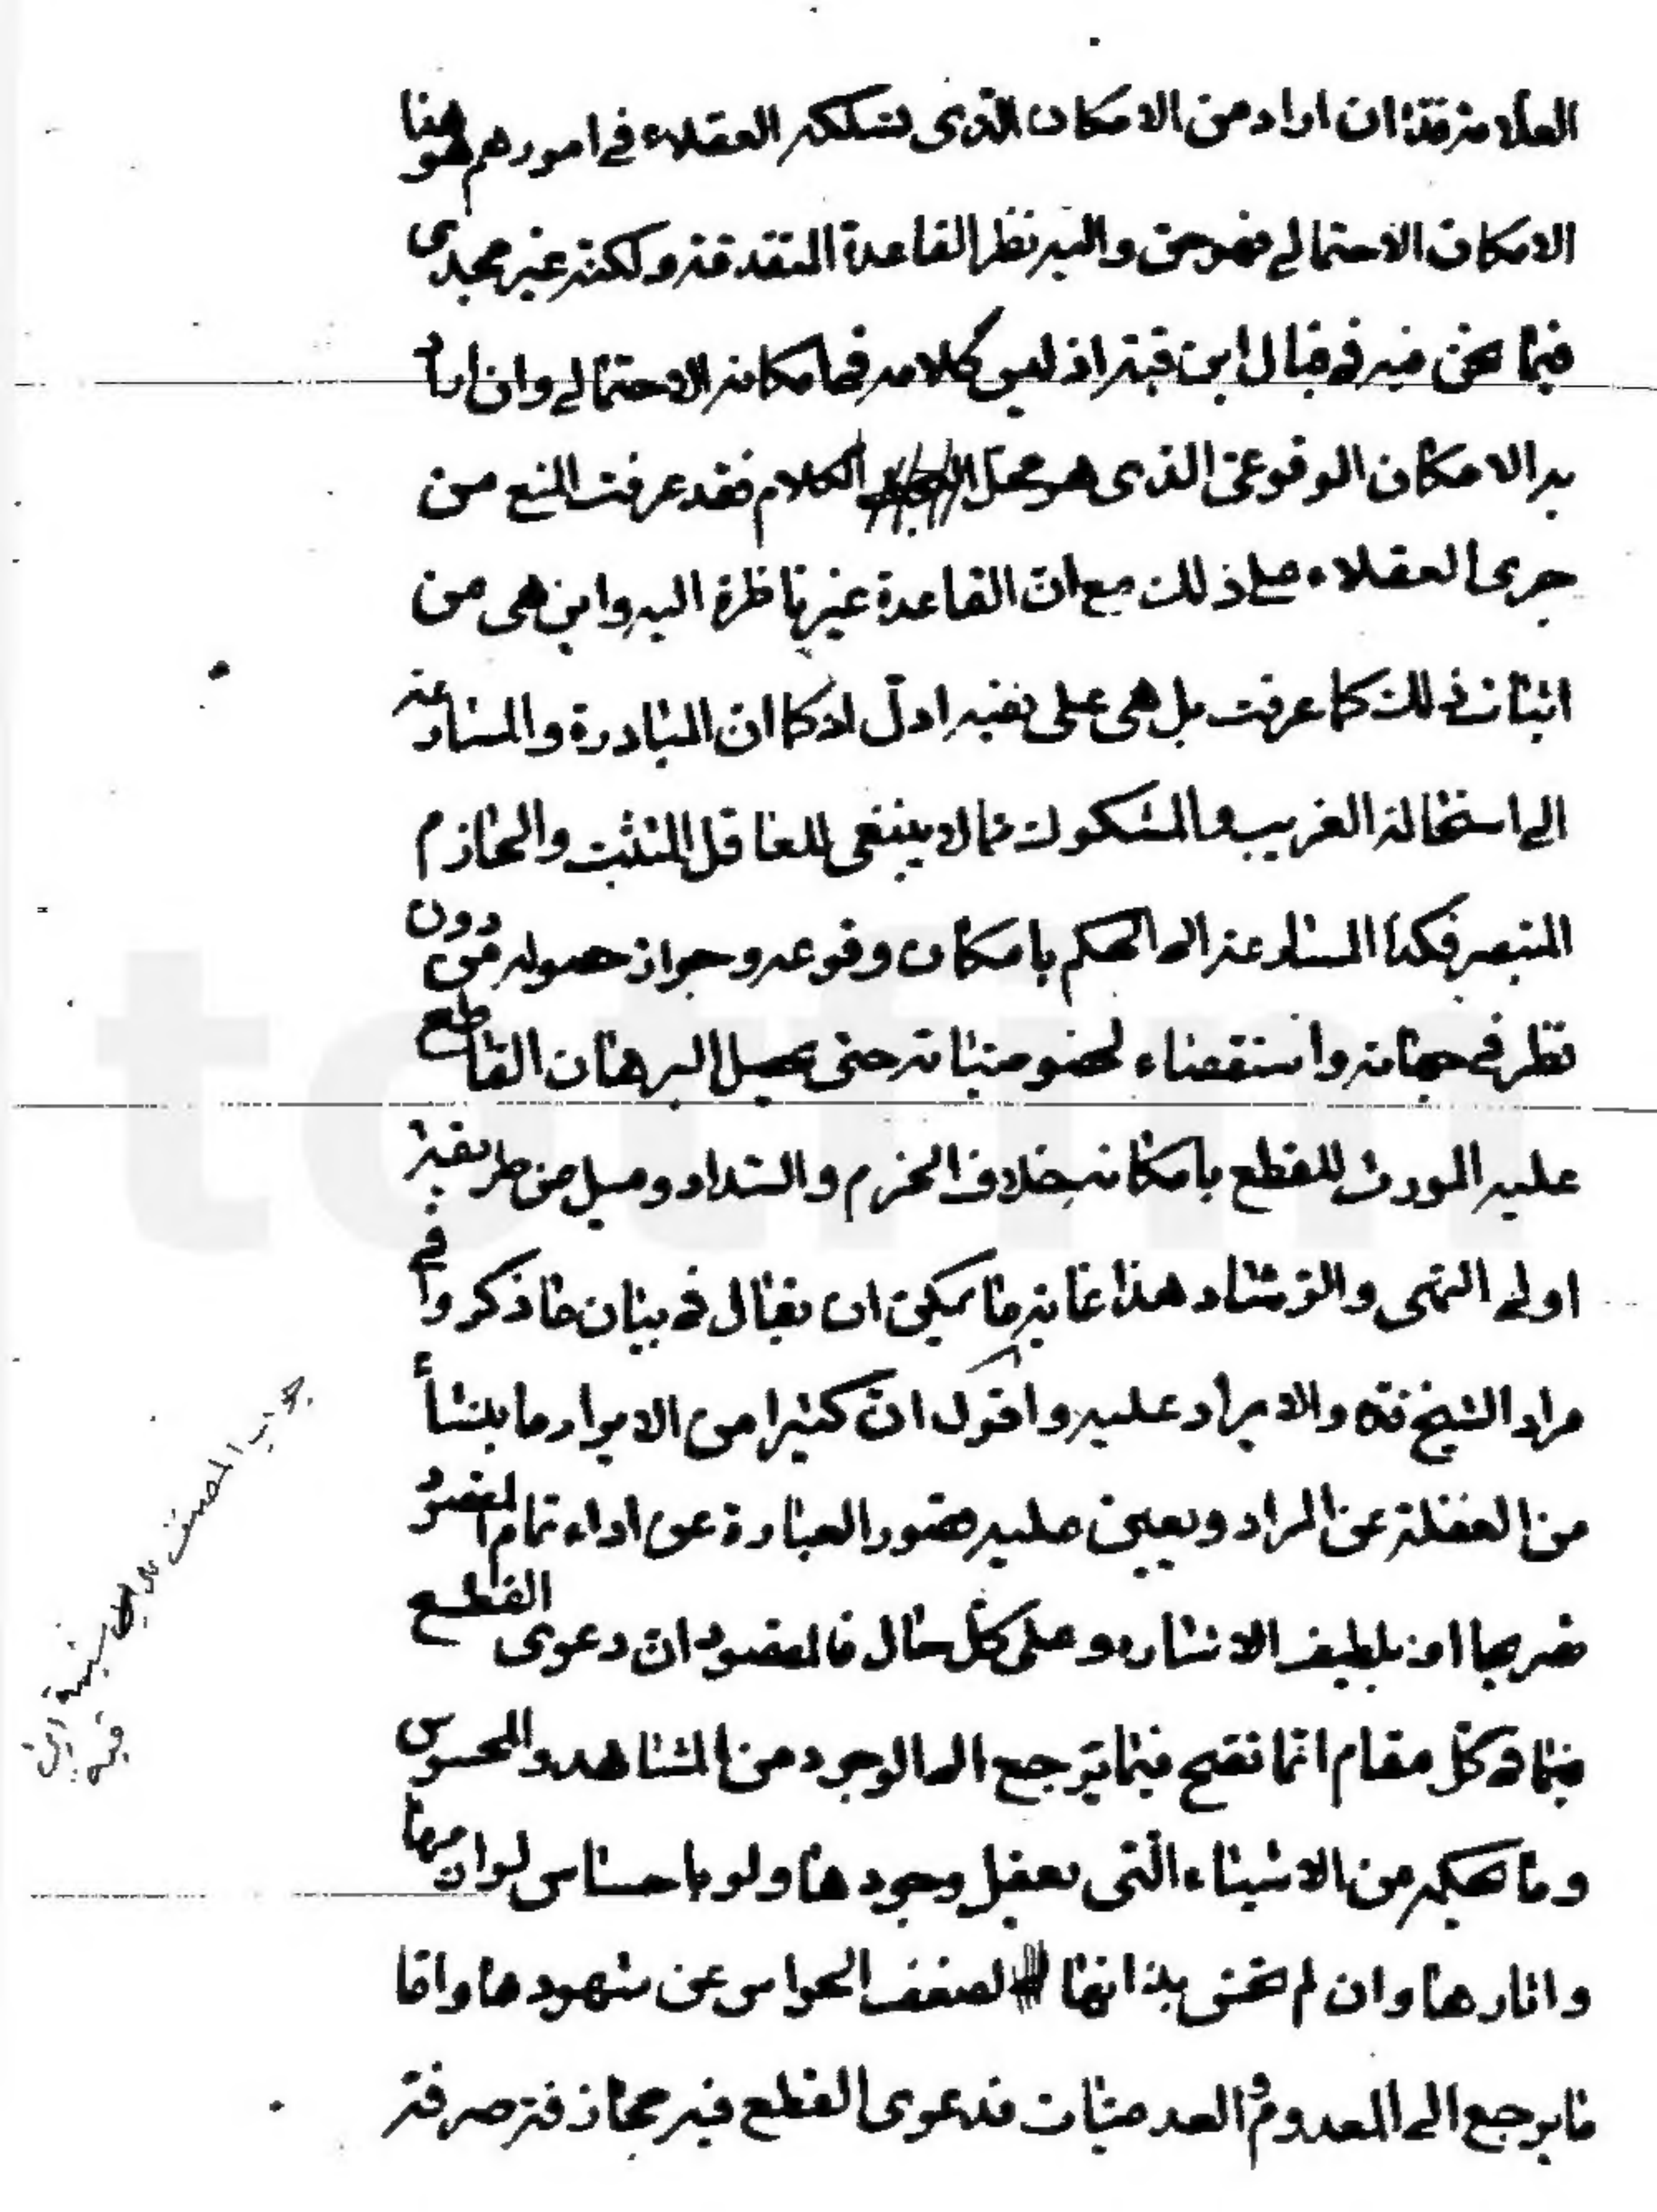 العلامة قدة ان اراد من الامكان الذى تسلكه العقلاء فى امورهم هو هنا
الامكان الاحتمالى فهو حق واليه نظر القاعدة المتقدمة ولكنه غير مجدى
فيما نحن فيه فى قبال ابن قبة اذ ليس كلامه فى امكانه الاحتمالى وان اراد
به الامكان الوقوعى الذى هو محل الكلام فقد عرفت المنع من
جرى العقلاء على ذلك مع ان القاعدة غير ناظرة اليه واين هى من
اثبات ذلك كما عرفت بل هى على نفيه ادل اذ كما ان المبادرة والمسارعة
الى استحالة الغريب والمشكوك مما لا ينبغى للعاقل المتثبت والحازم
المتبصر فكذا المسارعة الى الحكم بامكان وقوعه وجواز حصوله من دون
نظر فى جهاته واستقصاء لخصوصياته حتى يحصل البرهان القاطع
عليه المورث للقطع بامكانه خلاف الحزم والسداد وميل من طريقة
اولى النهى والرشاد هذا غاية ما يمكن ان يقال فى بيان ما ذكروا فى
مراد الشيخ قده والايراد عليه واقول ان كثيرا من الايراد ما ينشأ
من الغفلة عن المراد ويعين عليه قصور العبارة عن اداء تمام المقصود
صريحا او بلطيف الاشاره وعلى كل حال فالمقصود ان دعوى القطع
فيما فى كل مقام انما تصح فيما يرجع الى الوجود من المشاهد والمحسوس
وما بحكمه من الاشياء التى يعقل وجودها ولو باحساس لوازمها
واثارها وان لم تحس بذاتها لضعف الحواس عن شهودها واما
ما يرجع الى المعدوم والعدميات فدعوى القطع فيه مجازفة صرفة
المصنف
ابن
قبه